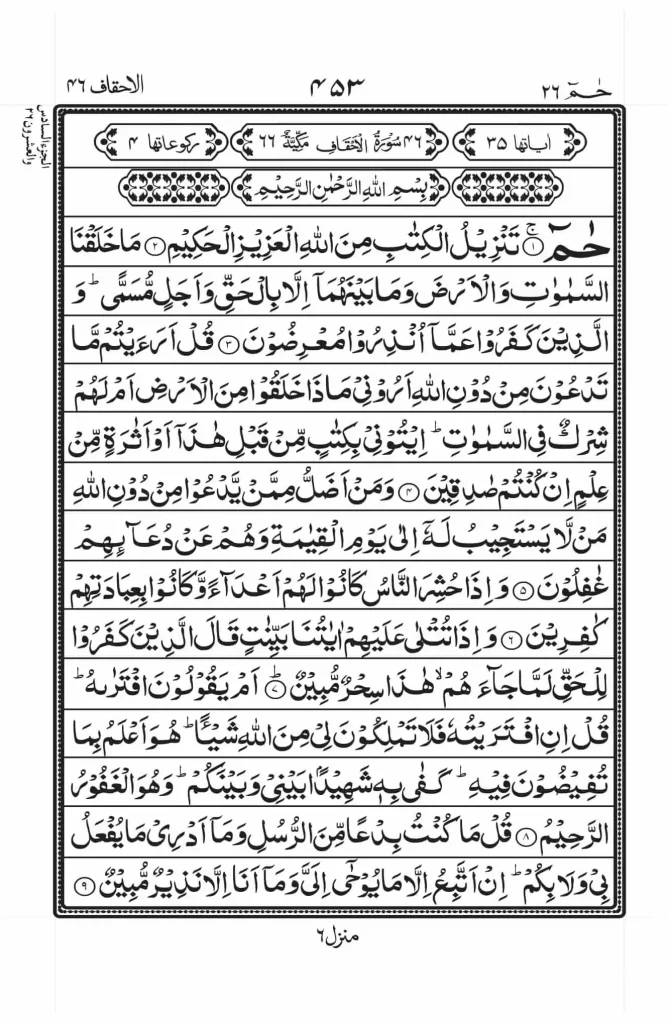 حٰمٓ ٢٦
٤٥٣
الاحقاف ٤٦
الجزء السادس والعشرون ٢٦
اٰیاتها ٣٥
٤٦ سُوْرَةُ الْاَحْقَافِ مَكِّيَّةٌ ٦٦
ركوعاتها ٤
بِسْمِ اللّٰهِ الرَّحْمٰنِ الرَّحِيْمِ
حٰمٓ ۚ ١ تَنْزِيْلُ الْكِتٰبِ مِنَ اللّٰهِ الْعَزِيْزِ الْحَكِيْمِ ٢ مَا خَلَقْنَا
السَّمٰوٰتِ وَالْاَرْضَ وَمَا بَيْنَهُمَاۤ اِلَّا بِالْحَقِّ وَاَجَلٍ مُّسَمًّى ؕ وَ
الَّذِيْنَ كَفَرُوْا عَمَّاۤ اُنْذِرُوْا مُعْرِضُوْنَ ٣ قُلْ اَرَءَيْتُمْ مَّا
تَدْعُوْنَ مِنْ دُوْنِ اللّٰهِ اَرُوْنِيْ مَاذَا خَلَقُوْا مِنَ الْاَرْضِ اَمْ لَهُمْ
شِرْكٌ فِي السَّمٰوٰتِ ؕ اِيْتُوْنِيْ بِكِتٰبٍ مِّنْ قَبْلِ هٰذَاۤ اَوْ اَثٰرَةٍ مِّنْ
عِلْمٍ اِنْ كُنْتُمْ صٰدِقِيْنَ ٤ وَمَنْ اَضَلُّ مِمَّنْ يَّدْعُوْا مِنْ دُوْنِ اللّٰهِ
مَنْ لَّا يَسْتَجِيْبُ لَهٗۤ اِلٰى يَوْمِ الْقِيٰمَةِ وَهُمْ عَنْ دُعَآىِٕهِمْ
غٰفِلُوْنَ ٥ وَاِذَا حُشِرَ النَّاسُ كَانُوْا لَهُمْ اَعْدَآءً وَّكَانُوْا بِعِبَادَتِهِمْ
كٰفِرِيْنَ ٦ وَاِذَا تُتْلٰى عَلَيْهِمْ اٰيٰتُنَا بَيِّنٰتٍ قَالَ الَّذِيْنَ كَفَرُوْا
لِلْحَقِّ لَمَّا جَآءَ هُمْ ۙ هٰذَا سِحْرٌ مُّبِيْنٌ ؕ ٧ اَمْ يَقُوْلُوْنَ افْتَرٰىهُ ؕ
قُلْ اِنِ افْتَرَيْتُهٗ فَلَا تَمْلِكُوْنَ لِيْ مِنَ اللّٰهِ شَيْـًٔا ؕ هُوَ اَعْلَمُ بِمَا
تُفِيْضُوْنَ فِيْهِ ؕ كَفٰى بِهٖ شَهِيْدًۢا بَيْنِيْ وَبَيْنَكُمْ ؕ وَهُوَ الْغَفُوْرُ
الرَّحِيْمُ ٨ قُلْ مَا كُنْتُ بِدْعًا مِّنَ الرُّسُلِ وَمَاۤ اَدْرِيْ مَا يُفْعَلُ
بِيْ وَلَا بِكُمْ ؕ اِنْ اَتَّبِعُ اِلَّا مَا يُوْحٰۤى اِلَيَّ وَمَاۤ اَنَا اِلَّا نَذِيْرٌ مُّبِيْنٌ ٩
منزل ٦